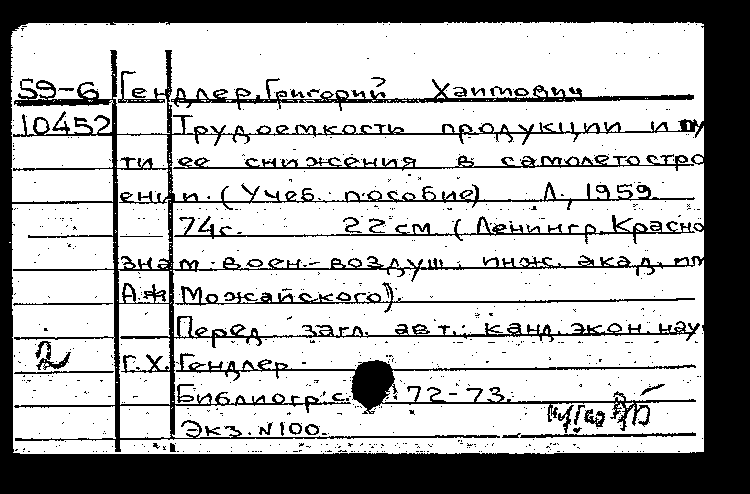 59-6 Гендлер, Григорий Хаимович
10452 Трудоемкость продукции и пу
ти ее снижения в самолетостро
ении. (Учеб. пособие) Л., 1959.
74с. 22 см (Ленингр. Красно
знам. воен.-воздуш. инж. акад. им
А.Ф Можайского).
Перед загл. авт.: канд. экон. нау
2 Г.Х. Гендлер
Библиогр: с. 72-73.
Экз. №100.